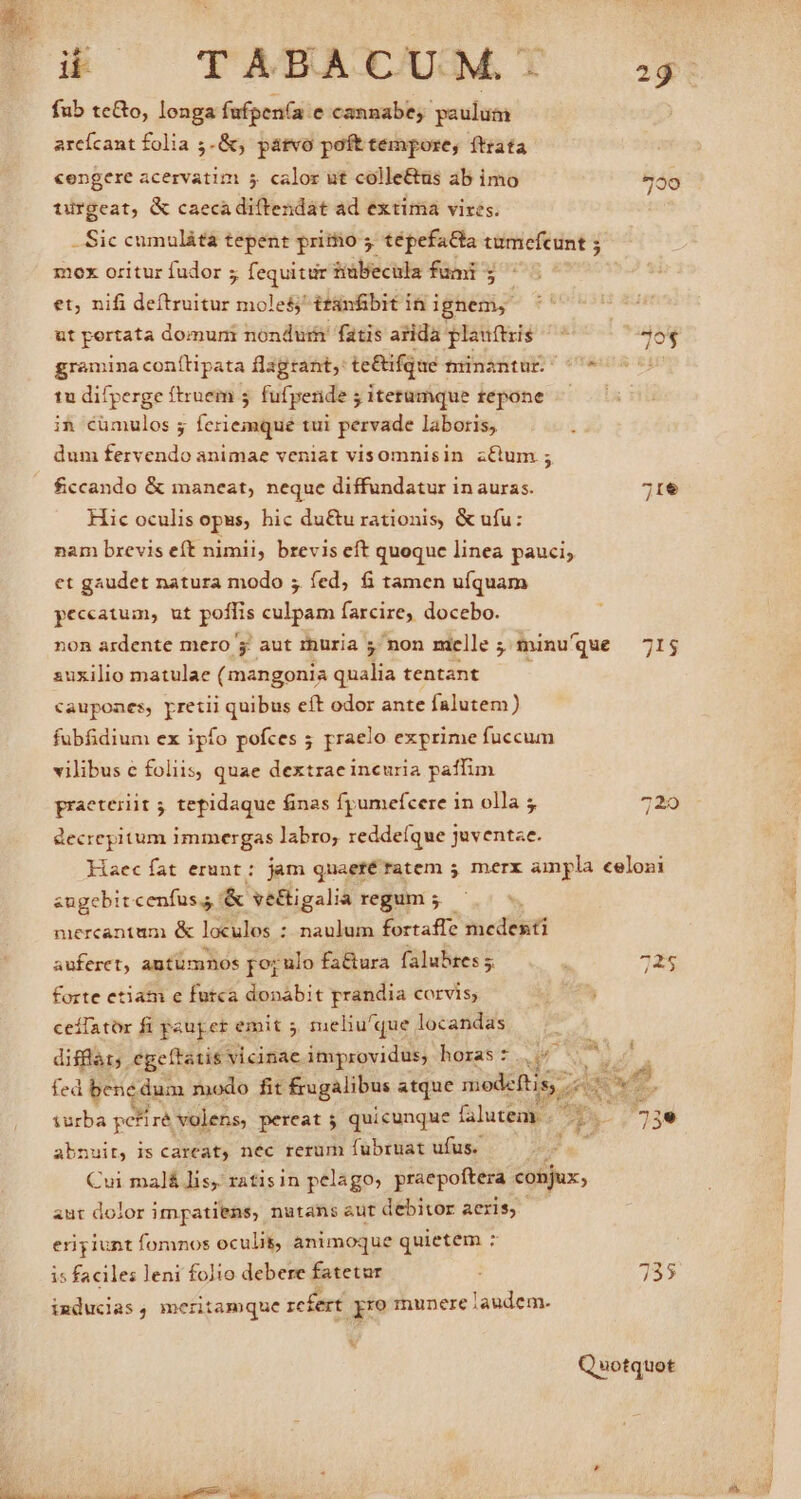 TABACUM. 29
ſub tecto, longa ſuſpenſa e cannabe, paulum
areſcant folia ; &, parvo poſt tempore, ſtrata
congere acervatim ; calor ut collectus ab imo 700
turgeat, & caeca diſtendat ad extima vires.
Sic cumulata tepent primo ; tepefacta tumeſcunt ;
mox oritur ſudor ; ſequitur nubecula fumi ;
et, niſi deſtruitur moles, tranſibit in ignem,
ut portata domum nondum ſatis arida plauſtris 705
gramina conſtipata flagrant, tectiſque minantur.
tu diſperge ſtruem ; ſuſpende ; iterumque repone
in cumulos ; ſeriemque tui pervade laboris,
dum fervendo animae veniat vis omnis in actum ;
ſiccando & maneat, neque diffundatur in auras. 710
Hic oculis opus, hic ductu rationis, & uſu :
nam brevis eſt nimii, brevis eſt quoque linea pauci,
et gaudet natura modo ; ſed, ſi tamen uſquam
peccatum, ut poſſis culpam ſarcire, docebo.
non ardente mero ; aut muria ; non melle ; minu'que 715
auxilio matulae (mangonia qualia tentant
caupones, pretii quibus eſt odor ante ſalutem)
ſubſidium ex ipſo poſces ; praelo exprime ſuccum
vilibus e foliis, quae dextrae incuria paſſim
praeteriit ; tepidaque ſinas ſpumeſcere in olla ; 720
decrepitum immergas labro, reddeſque juventae.
Haec ſat erunt : jam quaere ratem ; merx ampla coloni
augebit cenſus ; & vectigalia regum ;
mercantum & loculos : naulum fortaſſe medenti
auferet, autumnos populo factura ſalubres ; 725
forte etiam e furca donabit prandia corvis,
ceſſator ſi pauper emit ; meliu'que locandas
difflat, egeſtatis vicinae improvidus, horas :
ſed bene dum modo fit frugalibus atque modeſtis,
turba perire volens, pereat ; quicunque ſalutem 730
abnuit, is careat, nec rerum ſubruat uſus.
Cui mala lis, ratis in pelago, praepoſtera conjux,
aut dolor impatiens, nutans aut debitor aeris,
eripiunt ſomnos oculis, animoque quietem :
is faciles leni folio debere fatetur 735
inducias, meritamque refert pro munere laudem.
Quotquot